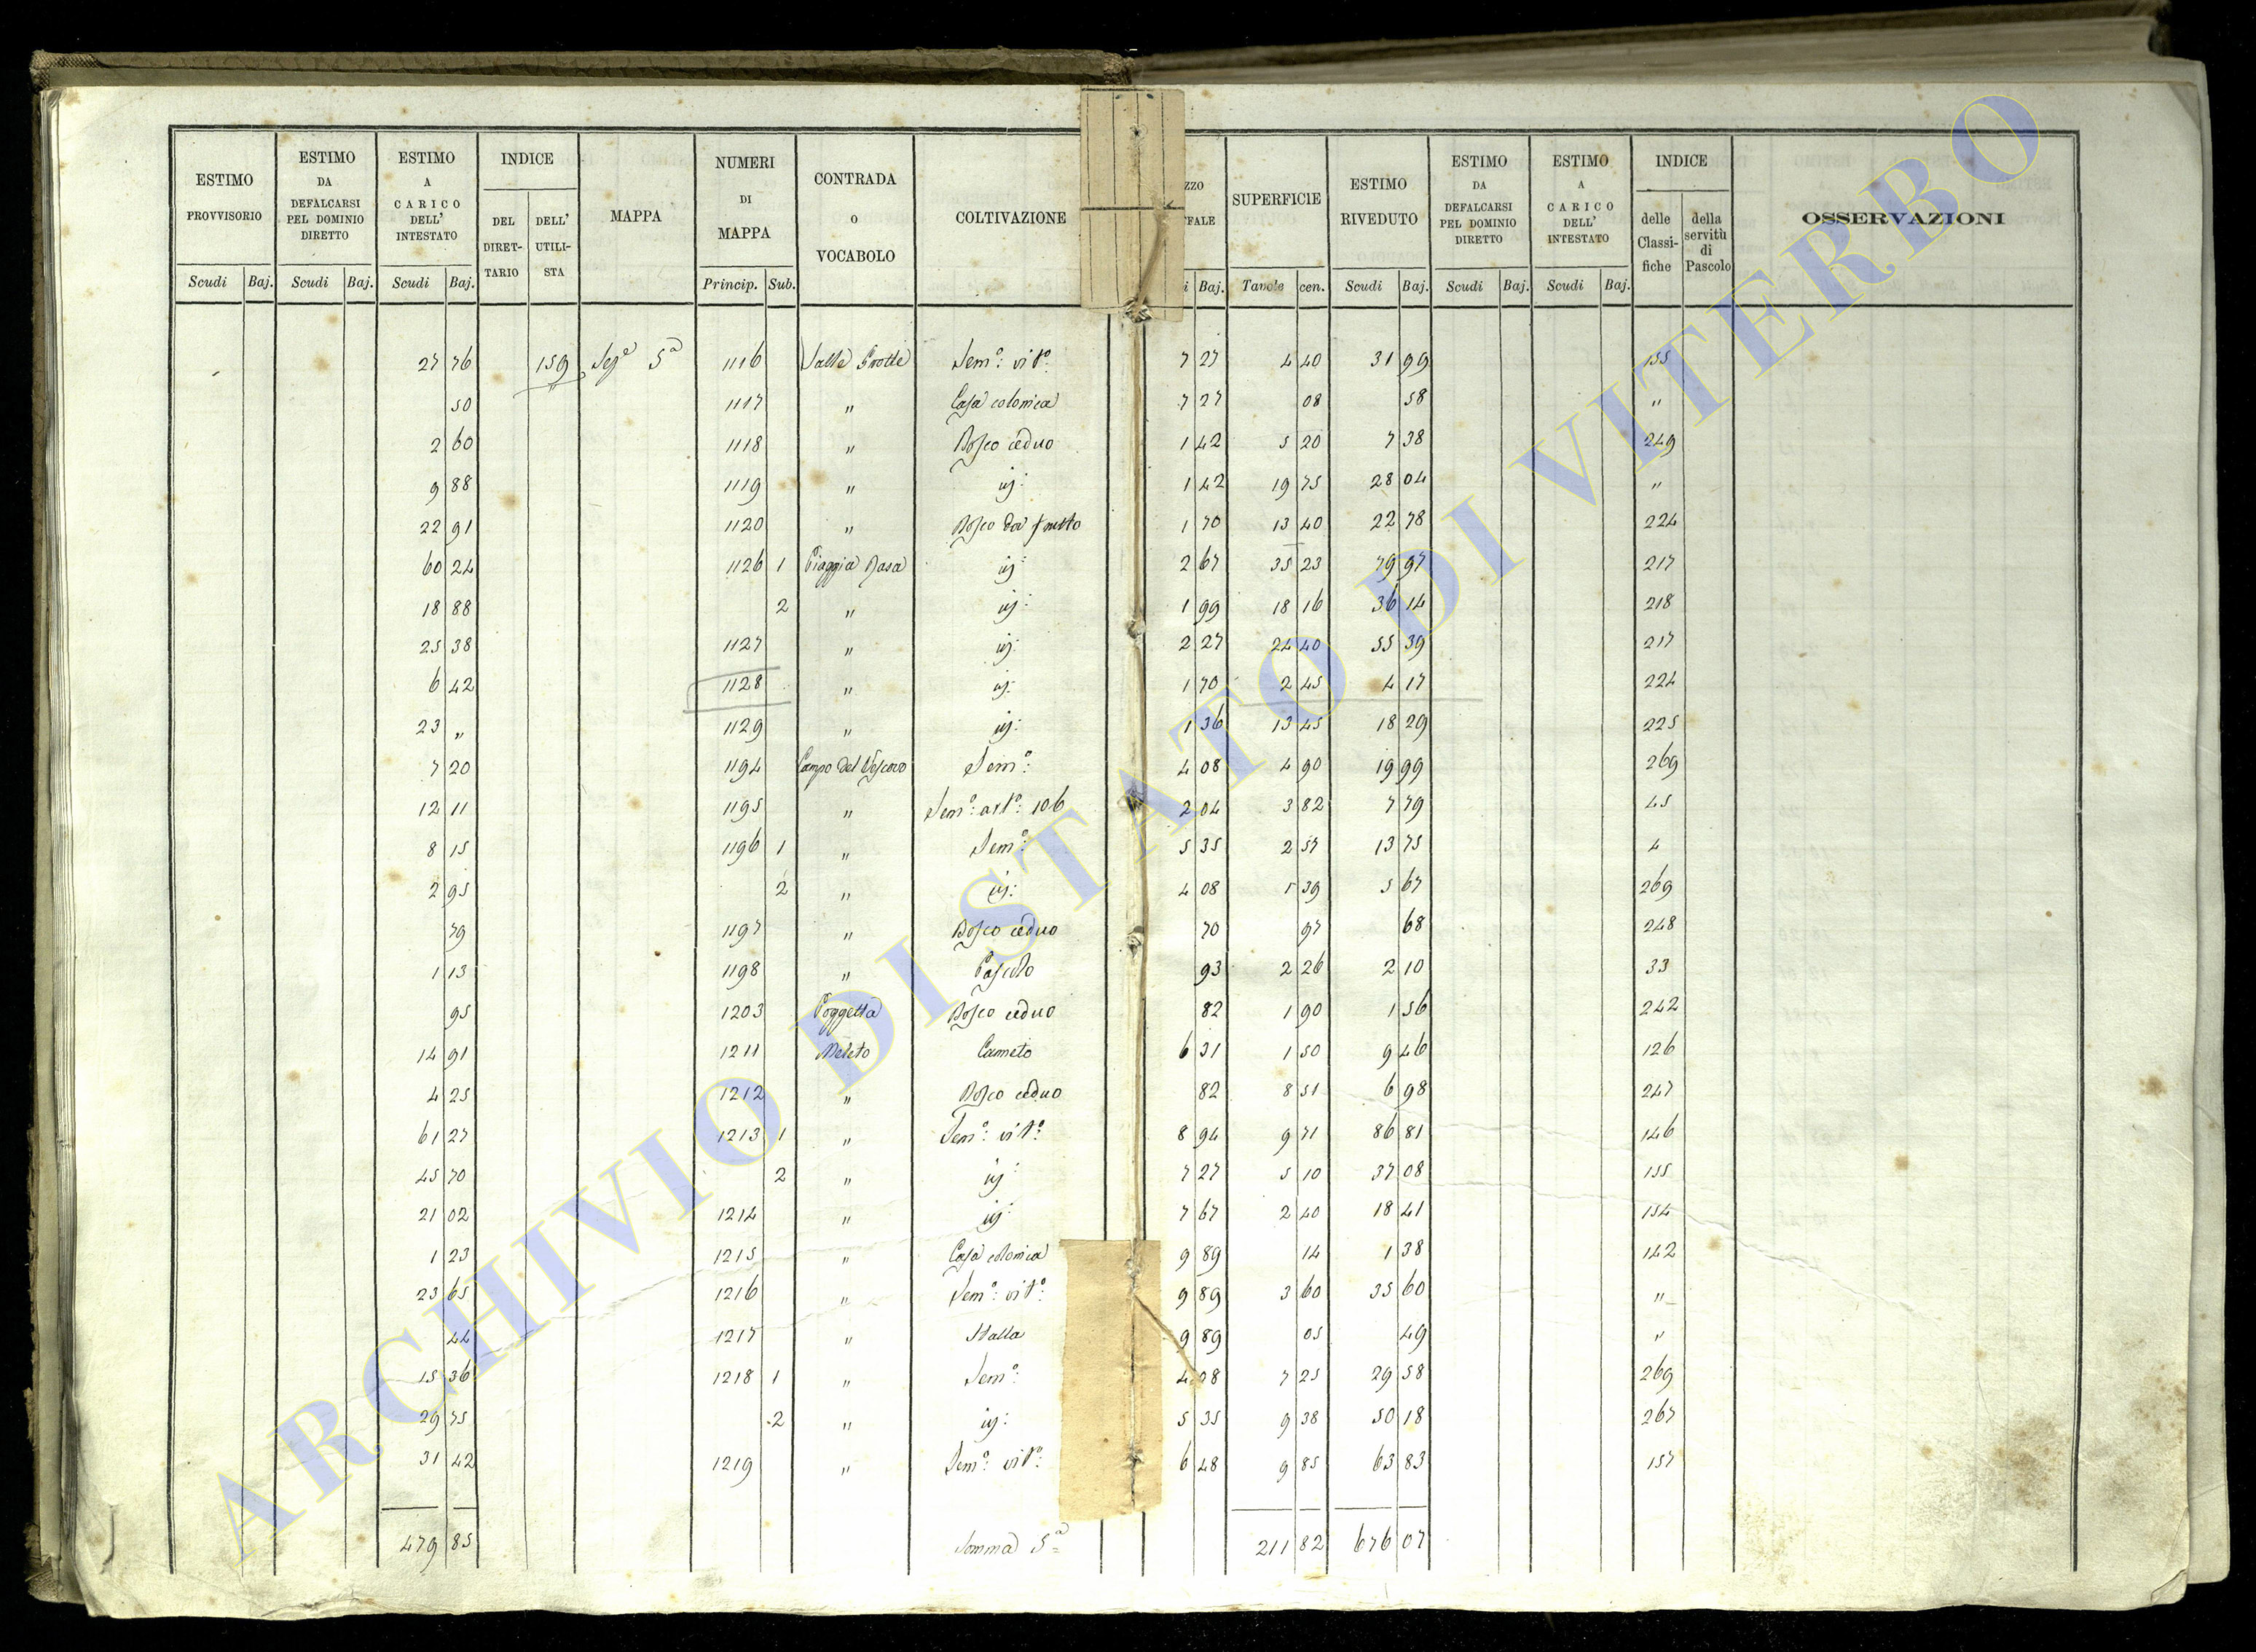 ESTIMO PROVVISORIO
ESTIMO DA DEFALCARSI PEL DOMINIO DIRETTO
ESTIMO A CARICO DELL' INTESTATO
INDICE
DEL DIRET-TARIO
DELL' UTILI-STA
MAPPA
NUMERI DI MAPPA
CONTRADA O VOCABOLO
COLTIVAZIONE
ZZO FFALE
SUPERFICIE
ESTIMO RIVEDUTO
ESTIMO DA DEFALCARSI PEL DOMINIO DIRETTO
ESTIMO A CARICO DELL' INTESTATO
INDICE
delle Classi-fiche
della servitù di Pascolo
OSSERVAZIONI
Scudi Baj. Scudi Baj. Scudi Baj. Princip. Sub. i Baj. Tavole cen. Scudi Baj. Scudi Baj. Scudi Baj.
27 76 159 Segª 5ª 1116 Valle Grotte Semº: vitº: 7 27 4 40 31 99 155
50 1117 " Casa colonica 7 27 08 58 "
2 60 1118 " Bosco ceduo 1 42 5 20 7 38 249
9 88 1119 " ij: 1 42 19 75 28 04 "
22 91 1120 " Bosco da frutto 1 70 13 40 22 78 224
60 24 1126 1 Piaggia Rasa ij: 2 67 35 23 79 97 217
18 88 2 " ij: 1 99 18 16 36 14 218
25 38 1127 " ij: 2 27 24 40 55 39 217
6 42 1128 " ij: 1 70 2 45 4 17 224
23 " 1129 " ij: 1 36 13 45 18 29 225
7 20 1194 Campo del Vescovo Semº: 4 08 4 90 19 99 269
12 11 1195 " Semº: artº: 106 2 04 3 82 7 79 45
8 15 1196 1 " Semº: 5 35 2 57 13 75 4
2 95 2 " ij: 4 08 1 39 5 67 269
79 1197 " Bosco ceduo 70 97 68 248
1 13 1198 " Pascolo 93 2 26 2 10 33
95 1203 Poggetta Bosco ceduo 82 1 90 1 56 242
14 91 1211 Meleto Canneto 6 31 1 50 9 46 126
4 25 1212 " Bosco ceduo 82 8 51 6 98 247
61 27 1213 1 " Semº: vitº: 8 94 9 71 86 81 146
45 70 2 " ij: 7 27 5 10 37 08 155
21 02 1214 " ij: 7 67 2 40 18 41 154
1 23 1215 " Casa colonica 9 89 14 1 38 142
23 65 1216 " Semº: vitº: 9 89 3 60 35 60 "
44 1217 " Stalla 9 89 05 49 "
15 36 1218 1 " Semº: 4 08 7 25 29 58 269
29 75 2 " ij: 5 35 9 38 50 18 267
31 42 1219 " Semº: vitº: 6 48 9 85 63 83 157
479 85 Somma 5ª 211 82 676 07
ARCHIVIO DI STATO DI VITERBO